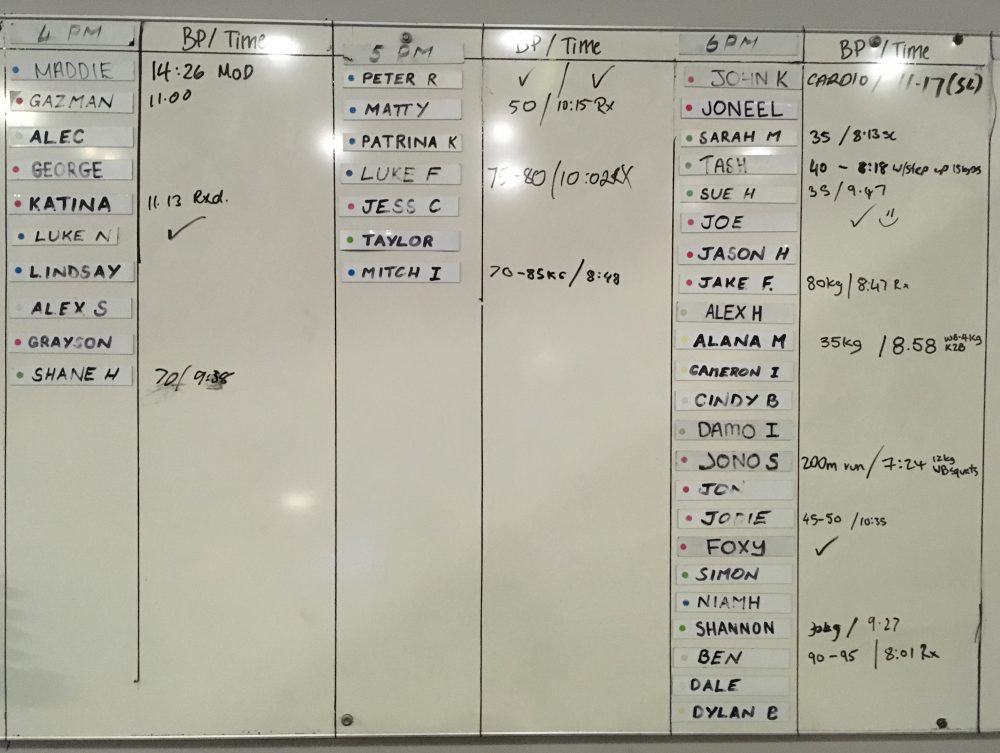 4 PM
BP/Time
MADDIE 14:26 MOD
GAZMAN 11.00
ALEC
GEORGE
KATINA 11.13 Rxd.
LUKE N ✓
LINDSAY
ALEX S
GRAYSON
SHANE H 70/9:38
5 PM
BP/Time
PETER R ✓ / ✓
MATTY 50/10:15 Rx
PATRINA K
LUKE F 75-80/10:02RX
JESS C
TAYLOR
MITCH I 70-85KG/8:48
6 PM
BP/Time
JOHN K CARDIO/ 11.17(SC)
JONEEL
SARAH M 35/8.13sc
TASH 40 - 8:18 w/step up 15kgDB
SUE H 35/9.47
JOE ✓
JASON H
JAKE F. 80kg/8:47 Rx
ALEX H
ALANA M 35kg /8.58 WB-4kg
K2B
CAMERON I
CINDY B
DAMO I
JONO S 200m run/7:24 12kg
WBsquats
JON
JODIE 45-50 /10:35
FOXY ✓
SIMON
NIAMH
SHANNON 30kg / 9.27
BEN 90-95 |8:01 Rx
DALE
DYLAN B